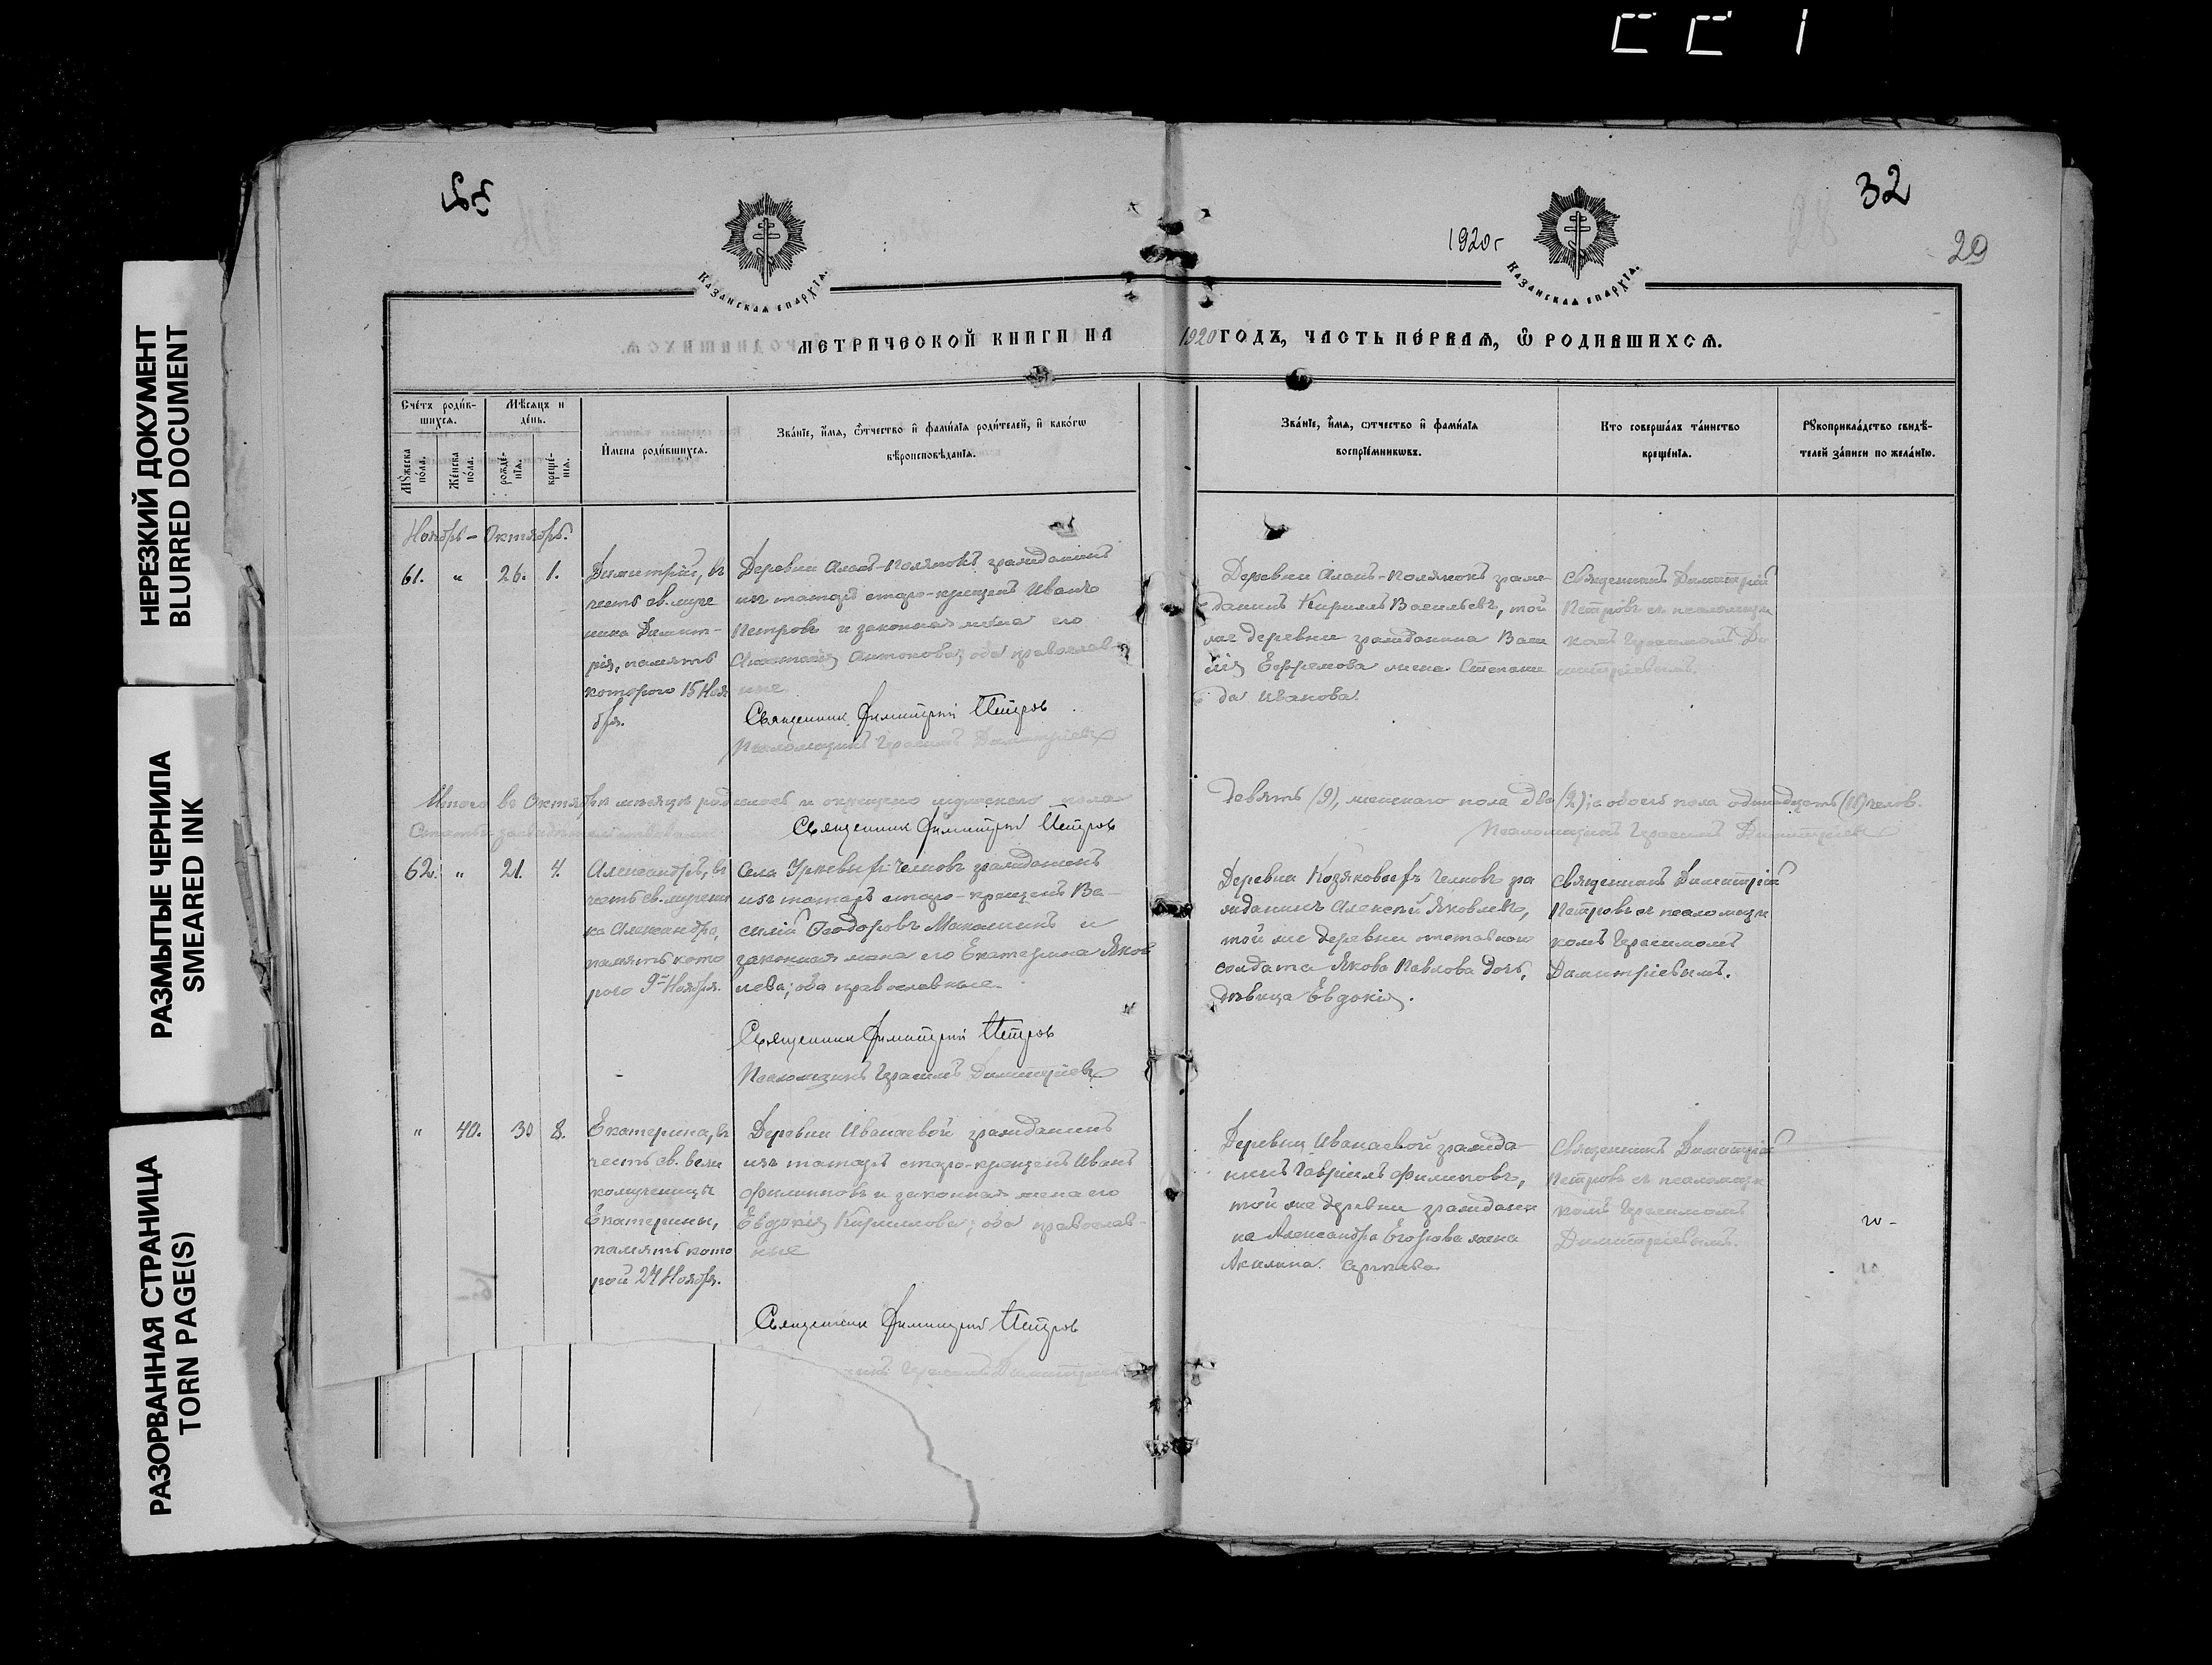 НЕРЕЗКИЙ ДОКУМЕНТ
BLURRED DOCUMENT
РАЗМЫТЫЕ ЧЕРНИЛА
SMEARED INK
РАЗОРВАННАЯ СТРАНИЦА
TORN PAGE(S)
32
1920г
29
Казанская епархїя.
Казанская епархїя.
МЕТРИЧЕСКОЙ КНИГИ НА 1920 ГОДЪ, ЧАСТЬ ПЕ́РВАѦ, Ѿ РОДИВШИХСѦ.
Сче́тъ роди́в-
шихсѧ.
Мꙋ́жеска по́ла.
Же́нска по́ла.
Мѣ́сѧцъ и де́нь.
рожде́-
нїѧ.
креще́-
нїѧ.
И҆мена̀ роди́вшихсѧ.
Зва́нїе, и҆́мѧ, ѻ҆́тчество и҆ фами́лїѧ роди́телей, и҆ како́гѡ
вѣроисповѣ́данїѧ.
Зва́нїе, и҆́мѧ, ѻ҆́тчество и҆ фами́лїѧ
воспрїе́мникѡвъ.
Кто̀ соверша́лъ та́инство
креще́нїѧ.
Рꙋкоприкла́дство свидѣ́-
телей за́писи по жела́нїю.
Ноябрь - Октябрь.
61. " 26. 1.
Димитрій, въ
честь св. муче
ника Димит-
рія, память
котораго 15 Ноя
бря.
Деревни Алан-Полянокъ гражданинъ
изъ татаръ старо-крещенъ Иванъ
Петровъ и законная жена его
Антонова, оба православ-
ные.
Священник Димитрий Петров
Псаломщикъ Герасимъ Димитріевъ
Деревни Алан-Полянокъ граж-
данинъ Кириллъ Васильевъ, той
же деревни гражданина Васи
лія Ефремова жена Степани
да Иванова.
Священникъ Димитрій
Петровъ съ псаломщи
комъ Герасимомъ Ди
митріевымъ.
Итого въ Октябрѣ мѣсяцѣ родилось и окрещено мужескаго пола
девять (9), женскаго пола два (2); а обоего пола одинадцать (11) челов.
Священник Димитрий Петров
Псаломщикъ Герасимъ Димитріевъ
62. " 21. 4.
Александръ, въ
честь св. мучени
ка Александра,
память кото
раго 9го Ноября.
Села Чемовъ гражданинъ
изъ татаръ старо-крещенъ Ва-
силій Ѳеодоровъ и
законная жена его Екатерина Яков
лева; оба православные.
Священник Димитрий Петров
Псаломщикъ Герасимъ Димитріевъ
Деревни Козяковыхъ Челновъ гра
жданинъ Алексей Яковлевъ,
той же деревни отставного
солдата Якова Павлова дочь,
девица Евдокія.
Священникъ Димитрій
Петровъ съ псаломщи
комъ Герасимомъ
Димитріевымъ.
" 40. 30 8.
Екатерина, въ
честь св. вели
комученицы
Екатерины,
память кото
рой 24 Ноября.
Деревни Иванаевой гражданинъ
изъ татаръ старо-крещенъ Иванъ
Филипповъ и законная жена его
Евдокія Кириллова; оба православ-
ные
Священник Димитрий Петров
Герасимъ Димитріевъ
Деревни Иванаевой гражда-
нинъ Гавріилъ Филиповъ,
той же деревни граждани
на Александра Егорова жена
Акилина
Священникъ Димитрій
Петровъ съ псаломщи
комъ Герасимомъ
Димитріевымъ.